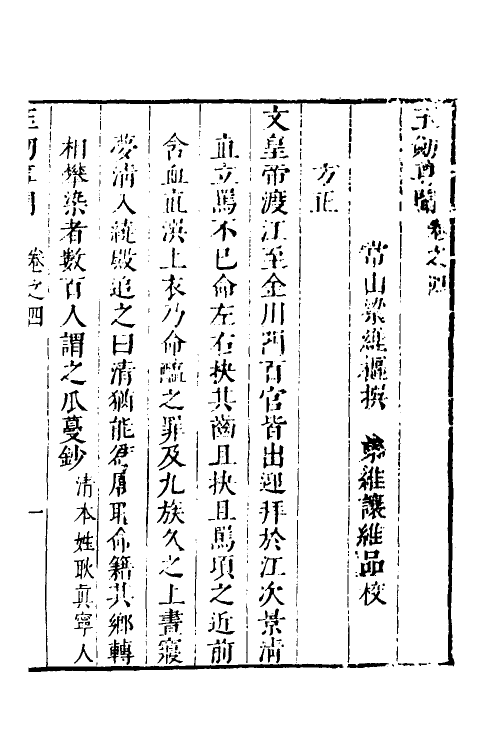 玉劍尊聞卷之四
常山梁維樞撰　梁維讓維品校
方正
文皇帝渡江至金川門百官皆出迎拜於江次景清
直立罵不已命左右抉其齒且抉且罵項之近前
含血直潠上衣乃命醢之罪及九族久之上晝寢
夢清入繞殿追之曰清猶能為厲耶命籍其鄉轉
相攀染者數百人謂之瓜蔓鈔清本姓耿真寧人
玉劍尊聞　卷之四　一